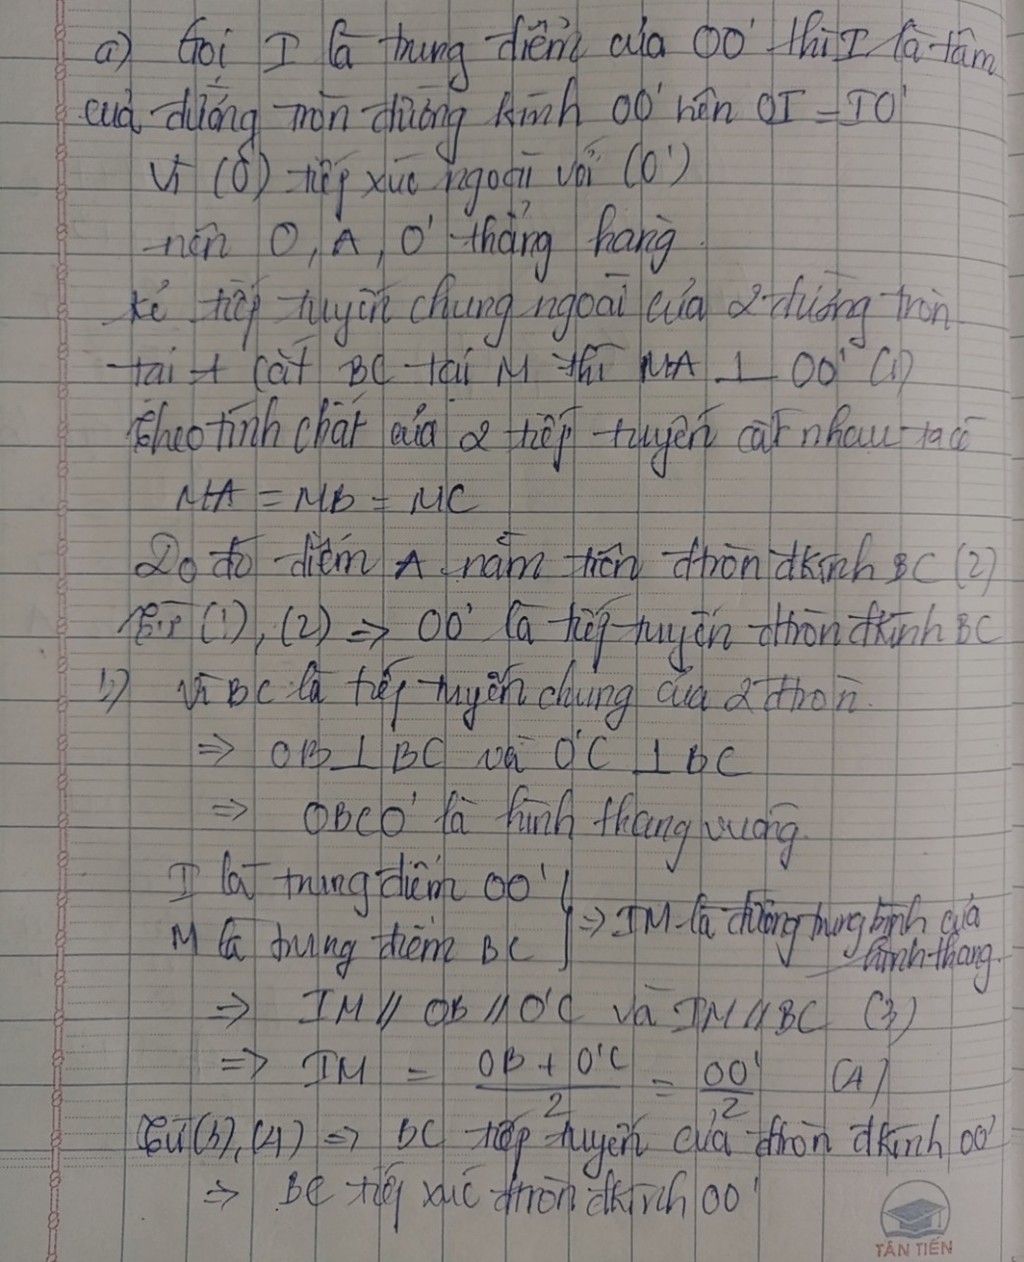 a) Gọi I là trung điểm của OO' thì I là tâm
của đường tròn đường kính OO' nên OI = IO'
Vì (O) tiếp xúc ngoài với (O')
nên O, A, O' thẳng hàng.
Kẻ tiếp tuyến chung ngoài của 2 đường tròn
tại A cắt BC tại M thì MA ⊥ OO' (1)
Theo tính chất của 2 tiếp tuyến cắt nhau ta có
MA = MB = MC
Do đó điểm A nằm trên đtròn đkính BC (2)
Từ (1), (2) => OO' là tiếp tuyến đtròn đkính BC
b) Vì BC là tiếp tuyến chung của 2 đtròn.
=> OB ⊥ BC và O'C ⊥ BC
=> OBCO' là hình thang vuông.
I là trung điểm OO'
M là trung điểm BC } => IM là đường trung bình của
hình thang.
=> IM // OB // O'C và IM // BC (3)
=> IM = (OB + O'C)/2 = OO'/2 (4)
Từ (3), (4) => BC tiếp tuyến của đtròn đkính OO'
=> BC tiếp xúc đtròn đkính OO'
TÂN TIẾN